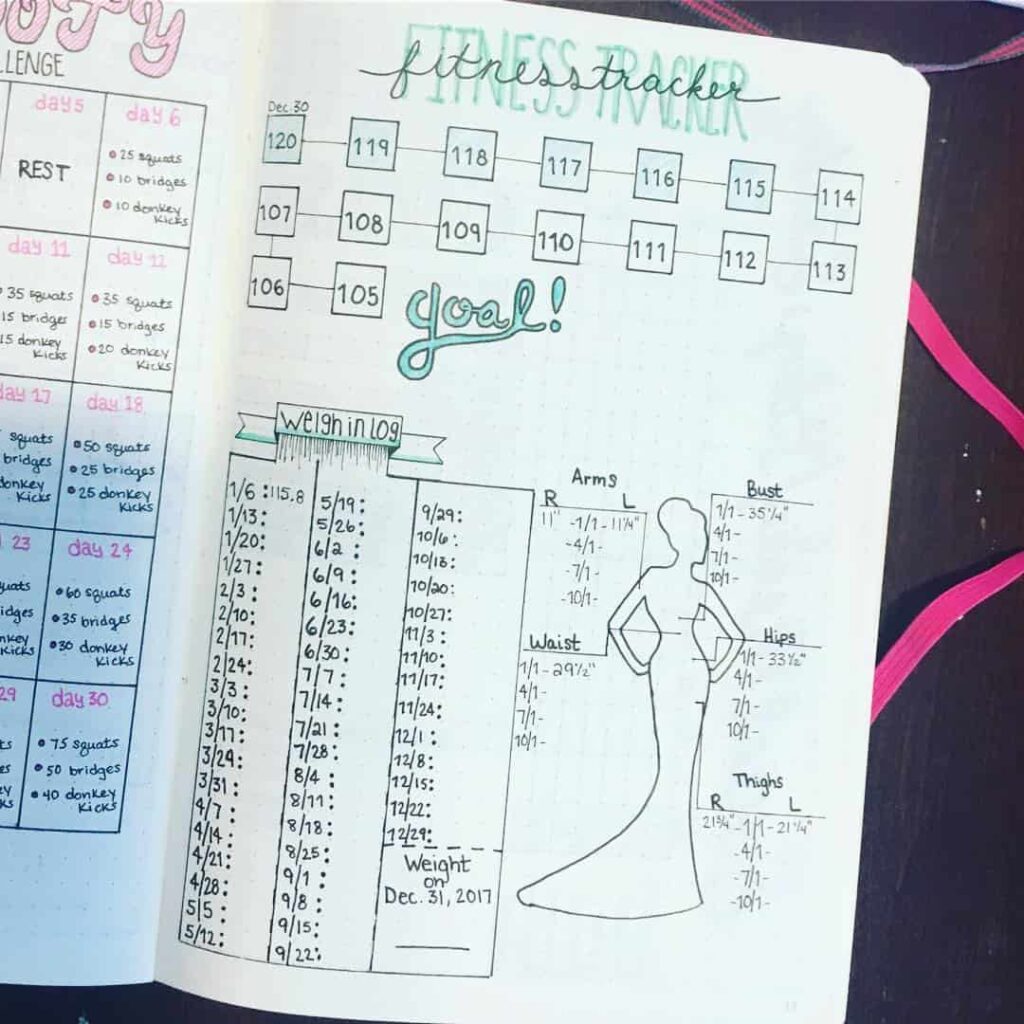 LLENGE
day 5
REST
day 6
25 squats
10 bridges
10 donkey
kicks
day 11
35 squats
15 bridges
15 donkey
kicks
day 12
35 squats
15 bridges
20 donkey
kicks
day 17
squats
bridges
donkey
kicks
day 18
50 squats
25 bridges
25 donkey
kicks
23
day 24
60 squats
35 bridges
30 donkey
kicks
29
day 30
75 squats
50 bridges
40 donkey
kicks
FITNESS TRACKER
fitness tracker
Dec. 30
120 119 118 117 116 115 114
107 108 109 110 111 112 113
106 105 goal!
Weigh in Log
1/6 : 115.8
1/13:
1/20:
1/27:
2/3:
2/10:
2/17:
2/24:
3/3:
3/10:
3/17:
3/24:
3/31:
4/7:
4/14:
4/21:
4/28:
5/5:
5/12:
5/19:
5/26:
6/2:
6/9:
6/16:
6/23:
6/30:
7/7:
7/14:
7/21:
7/28:
8/4:
8/11:
8/18:
8/25:
9/1:
9/8:
9/15:
9/22:
9/29:
10/6:
10/13:
10/20:
10/27:
11/3:
11/10:
11/17:
11/24:
12/1:
12/8:
12/15:
12/22:
12/29:
Weight
on
Dec. 31, 2017
Arms
R L
11" -1/1- 11 1/4"
-4/1-
-7/1-
-10/1-
Bust
1/1- 35 1/4"
4/1-
7/1-
10/1-
Waist
1/1- 29 1/2"
4/1-
7/1-
10/1-
Hips
1/1- 33 1/2"
4/1-
7/1-
10/1-
Thighs
R L
21 3/4" -1/1- 21 1/4"
-4/1-
-7/1-
-10/1-